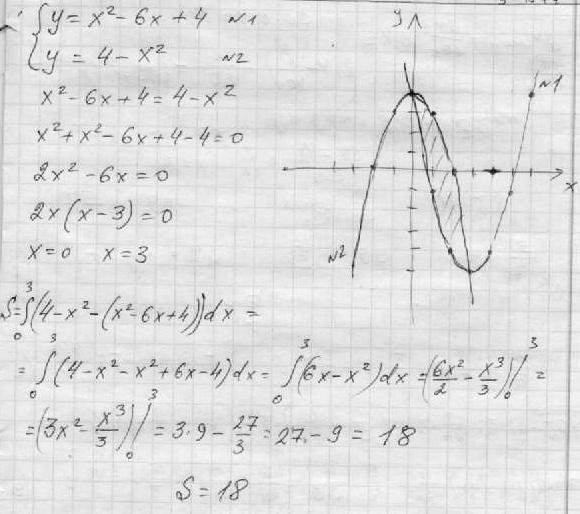 y = x² - 6x + 4 N1
y = 4 - x² N2
x² - 6x + 4 = 4 - x²
x² + x² - 6x + 4 - 4 = 0
2x² - 6x = 0
2x(x - 3) = 0
x = 0 x = 3
S = ∫₀³(4 - x² - (x² - 6x + 4))dx =
= ∫₀³(4 - x² - x² + 6x - 4)dx = ∫₀³(6x - x²)dx = (6x²/2 - x³/3)|₀³ =
= (3x² - x³/3)|₀³ = 3·9 - 27/3 = 27 - 9 = 18
S = 18
y
N1
x
N2